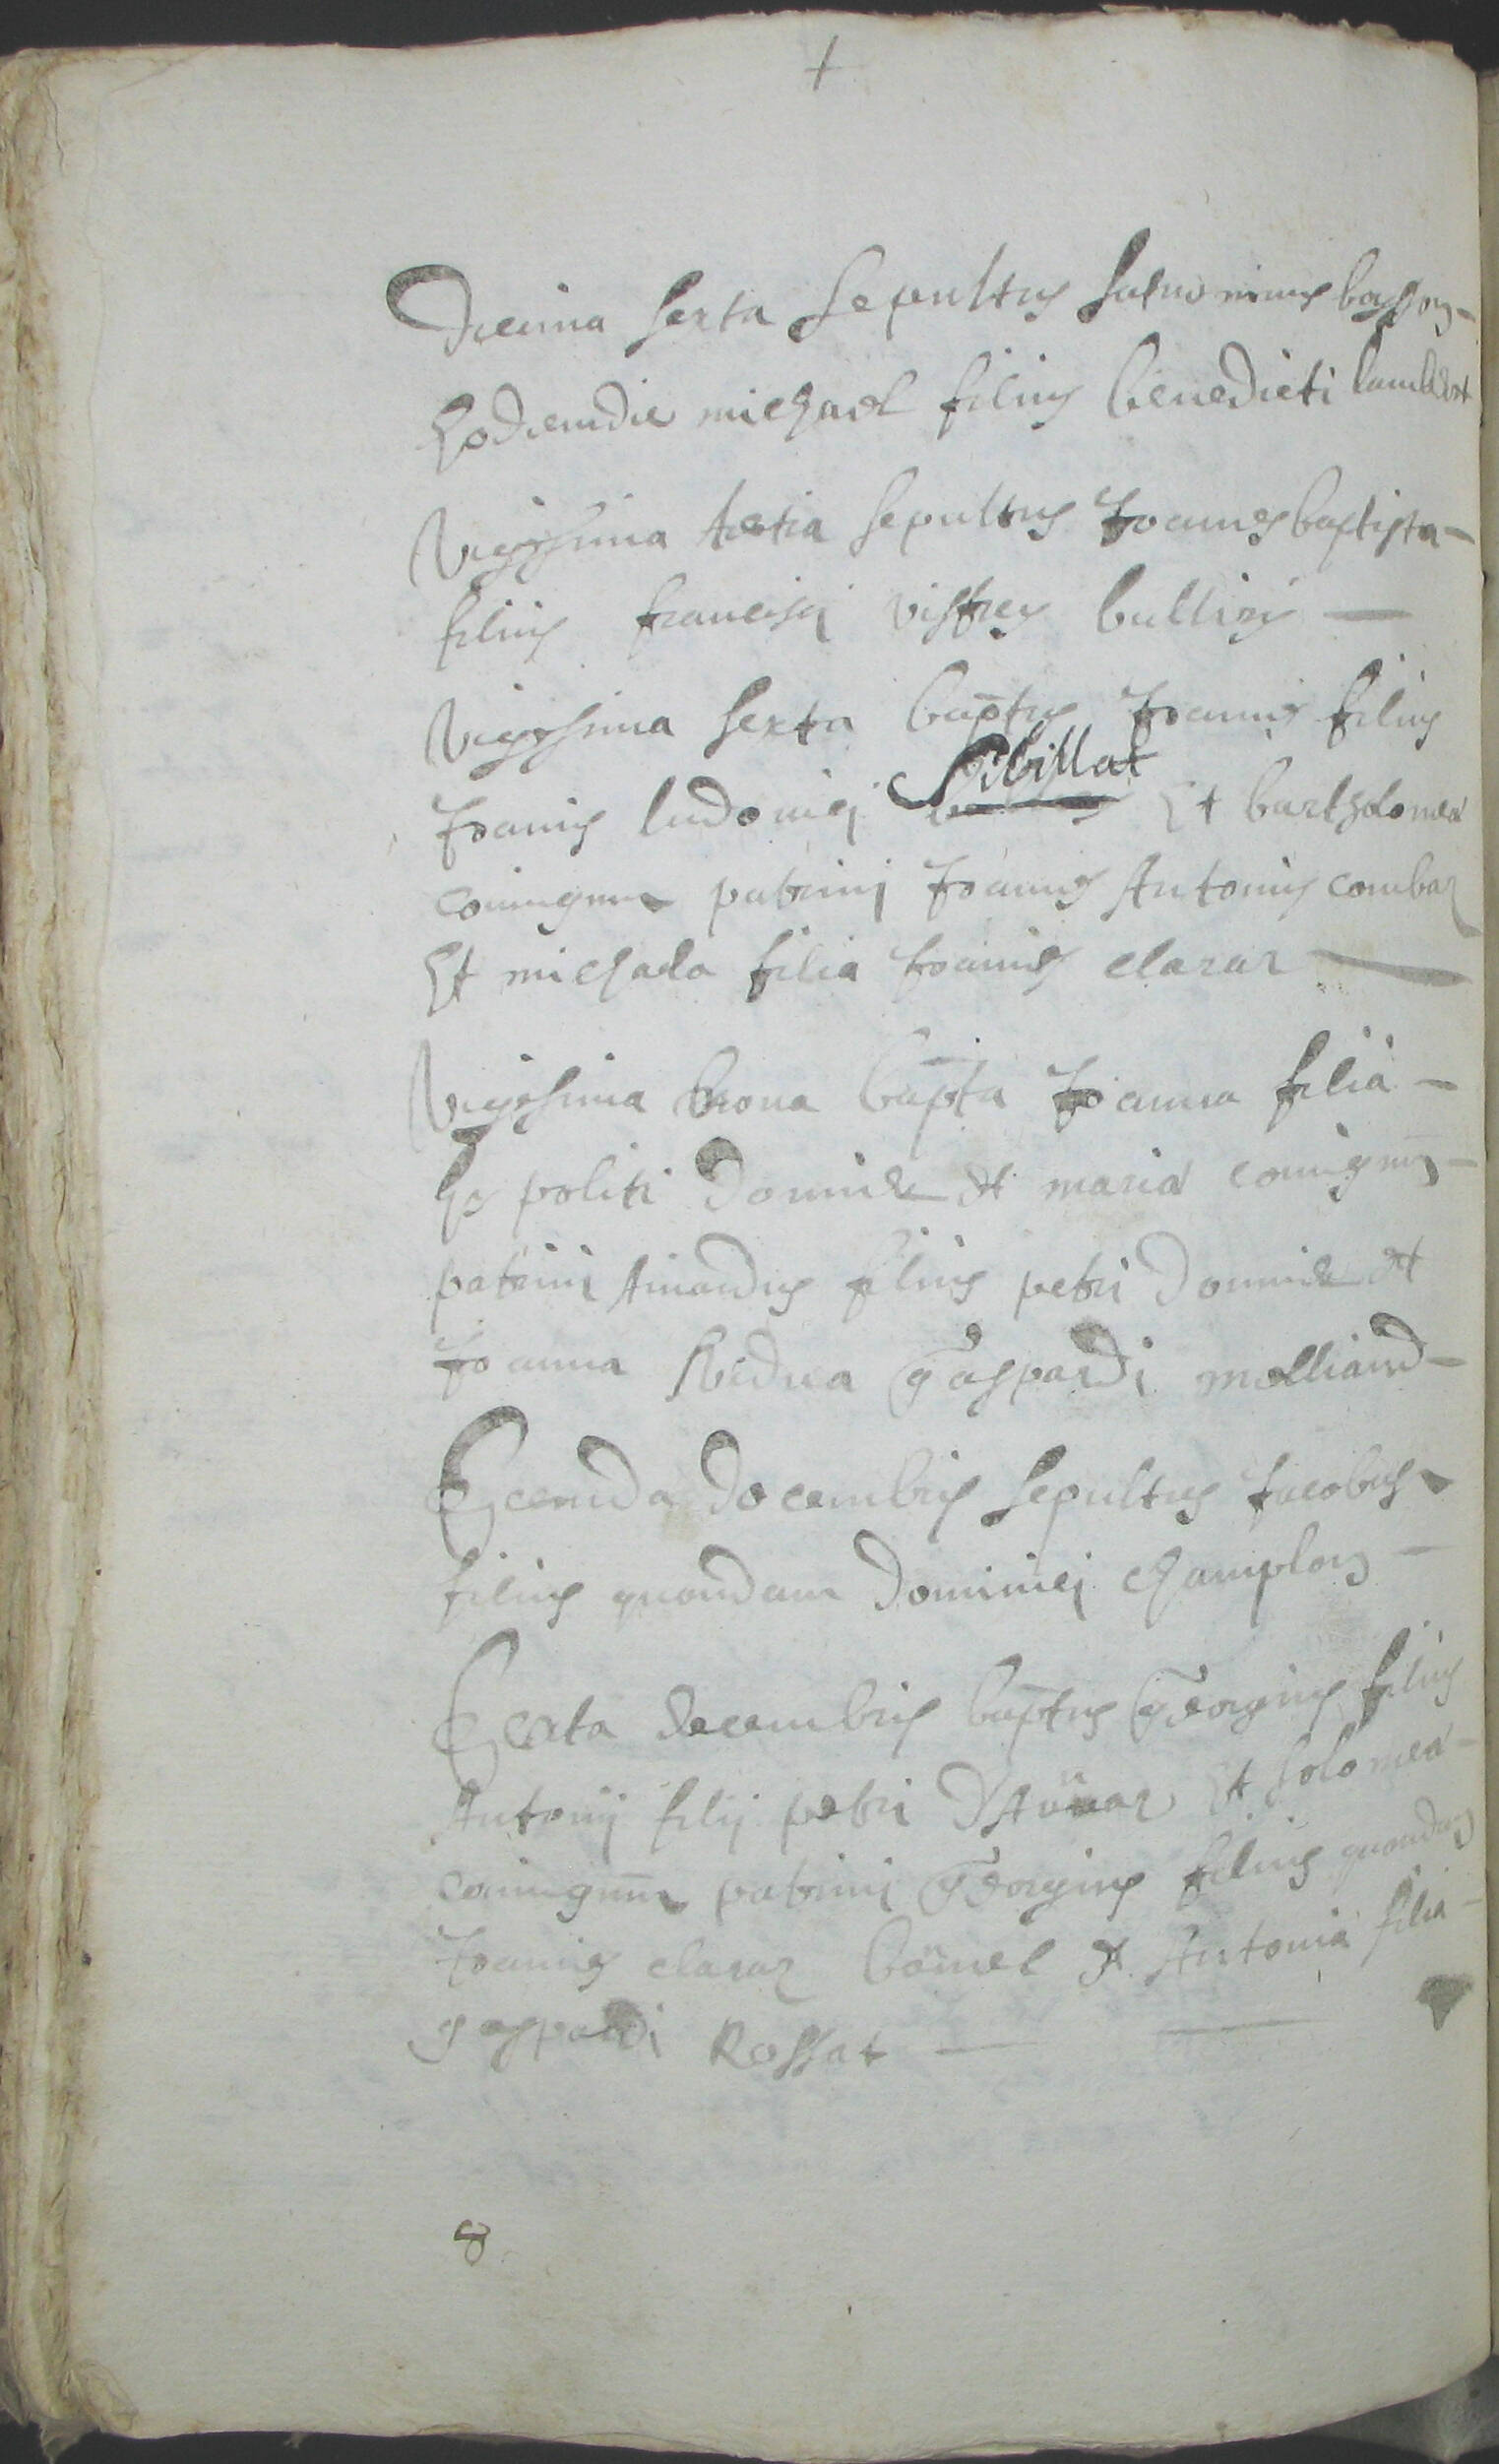 +
Decima sexta sepultus saturninus
Eodemdie michael filius benedicti lambert
Vigesima tertia sepultus Joannes baptista -
filius francisci vissrey
Vigesima sexta bap̄tus Joannes filius
Joannis ludovici Sibillat Et bartholomea
coniugum patrini Joannes Antonius combaz
Et michaela filia Joannis claraz
Vigesima nona bap̄ta Joanna filia -
ypoliti et maria coniugum -
patrini Aimardus filius petri et
Joanna Vidua Gaspardi molliard -
Secunda decembris sepultus Jacobus
filius quondam dominici champlong -
Sexta decembris bap̄tus Georgius filius
Antonij filij petri Et solomea -
coniugum patrini Georgius filius quondam
Joannis claraz et Antonia filia -
gaspardi Rossat -
8